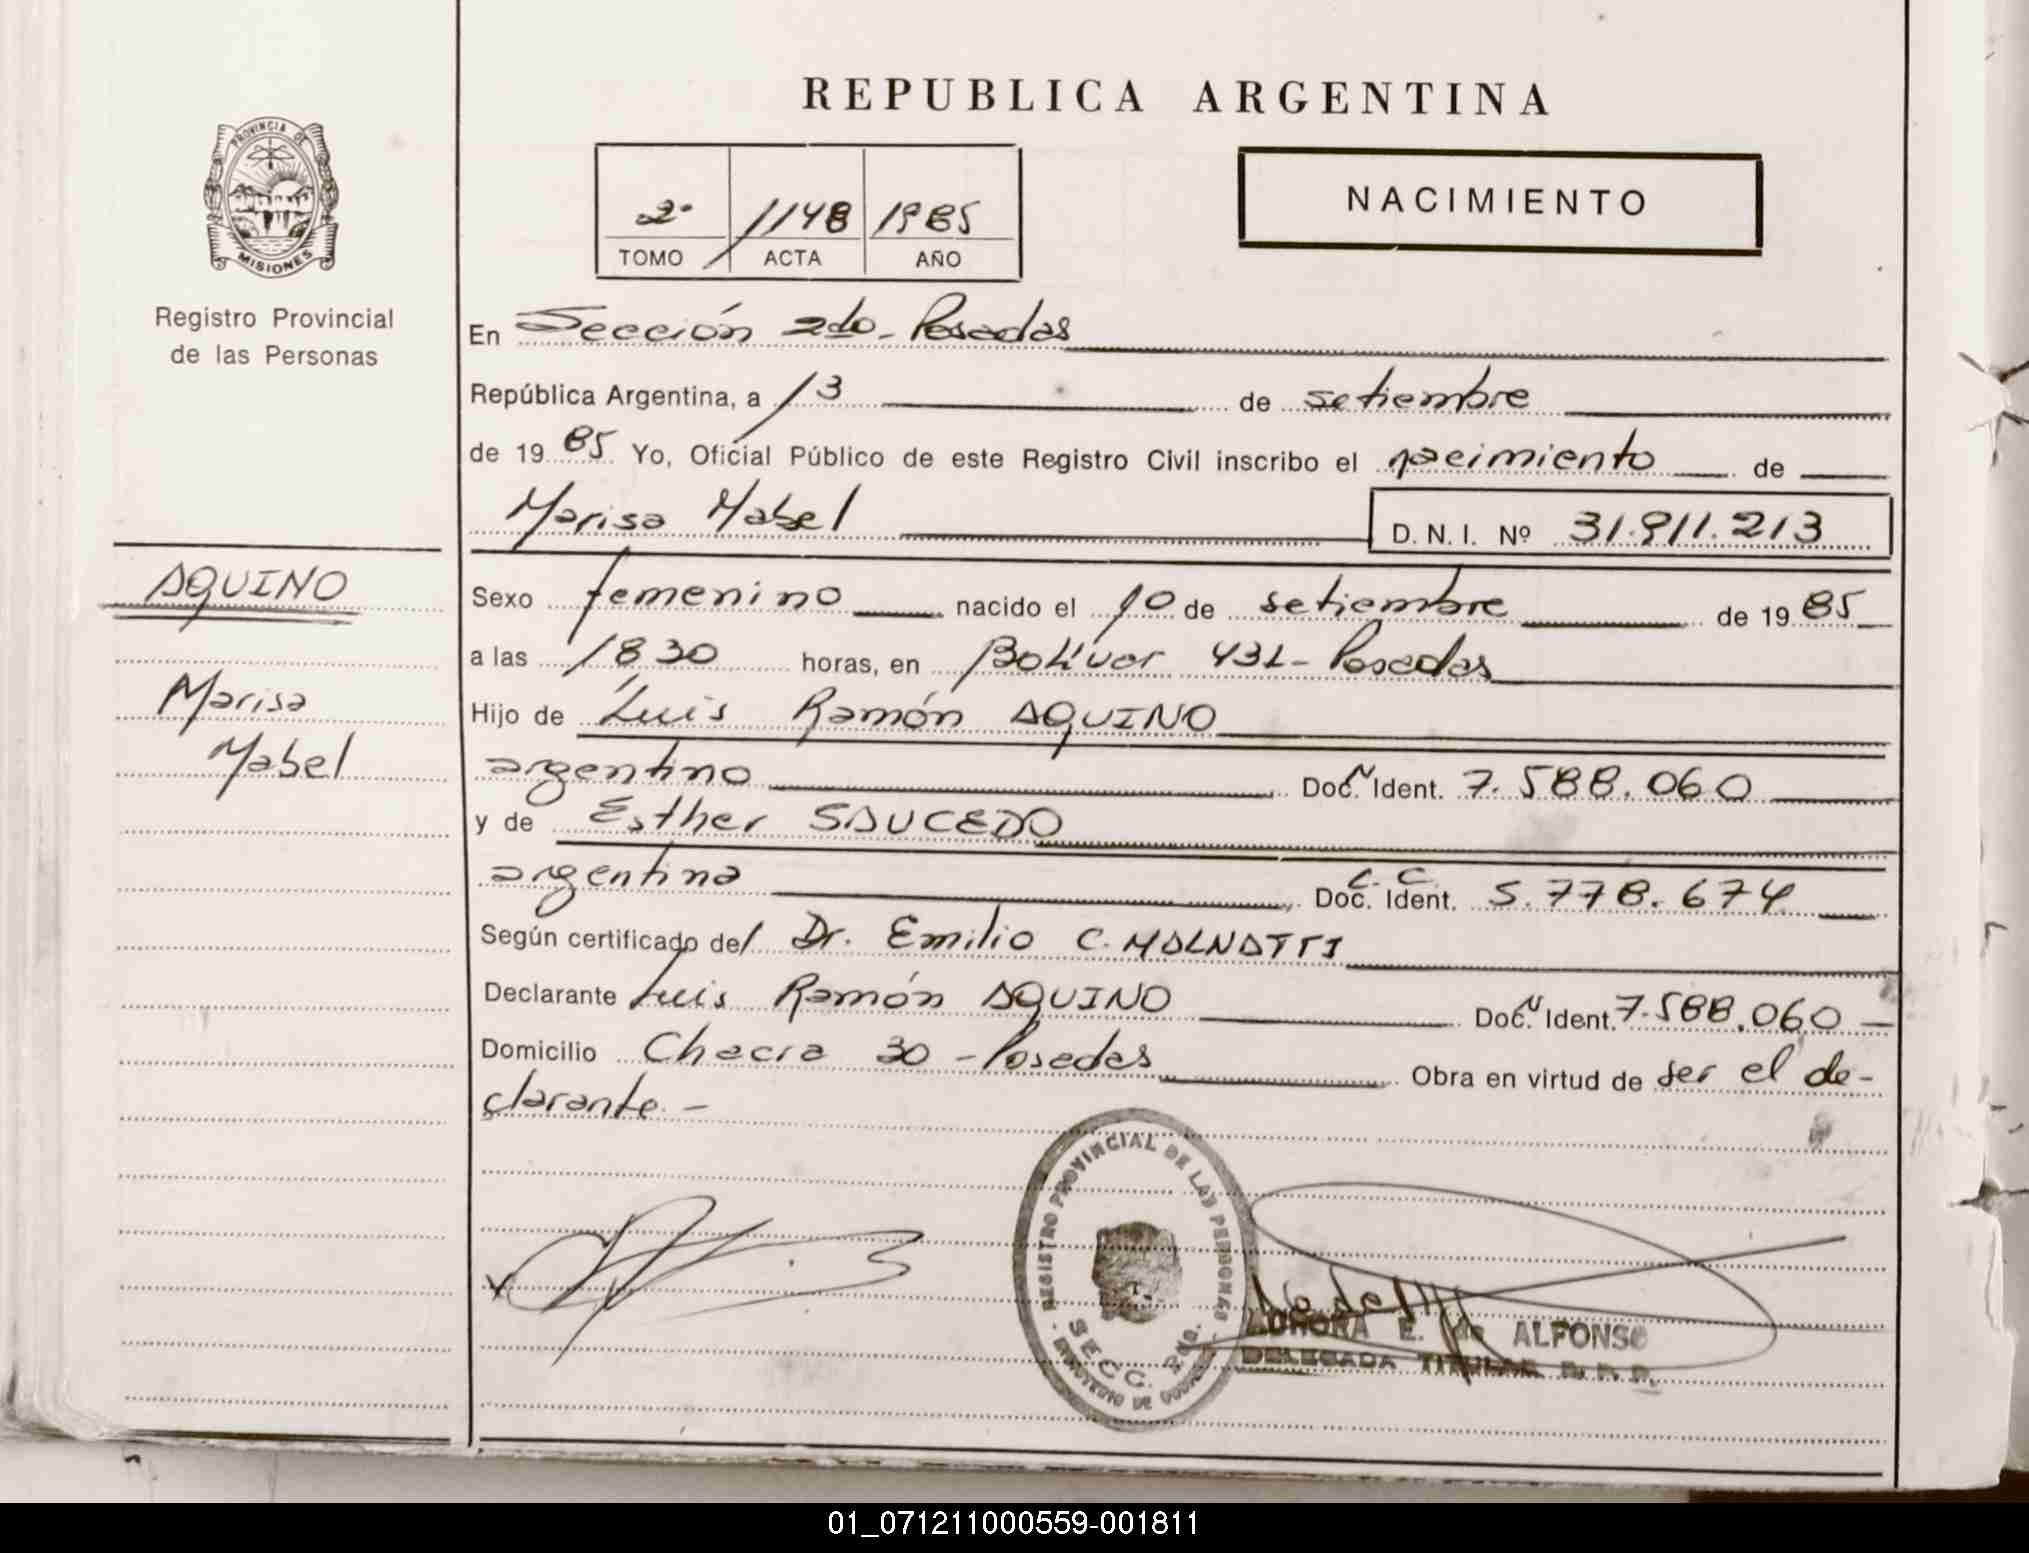 REPUBLICA ARGENTINA
PROVINCIA DE
MISIONES
Registro Provincial
de las Personas
2º 1148 1985
TOMO ACTA AÑO
NACIMIENTO
En Sección 2do - Posadas
República Argentina, a 13 de setiembre
de 1985 Yo, Oficial Público de este Registro Civil inscribo el nacimiento de
Marisa Mabel D. N. I. Nº 31.911.213
AQUINO
Marisa
Mabel
Sexo femenino nacido el 10 de setiembre de 1985
a las 1830 horas, en Bolívar 431 - Posadas
Hijo de Luis Ramón AQUINO
argentino Doc. Ident. 7.588.060
y de Esther SAUCEDO
argentina L.C. Doc. Ident. 5.778.674
Según certificado del Dr. Emilio C. MALNATTI
Declarante Luis Ramón AQUINO Doc. Ident. 7.588.060
Domicilio Chacra 30 - Posadas Obra en virtud de ser el de-
clarante. -
REGISTRO PROVINCIAL DE LAS PERSONAS
SECC. 2da.
AURORA E. de ALFONSO
DELEGADA TITULAR R. P. P.
01_071211000559-001811